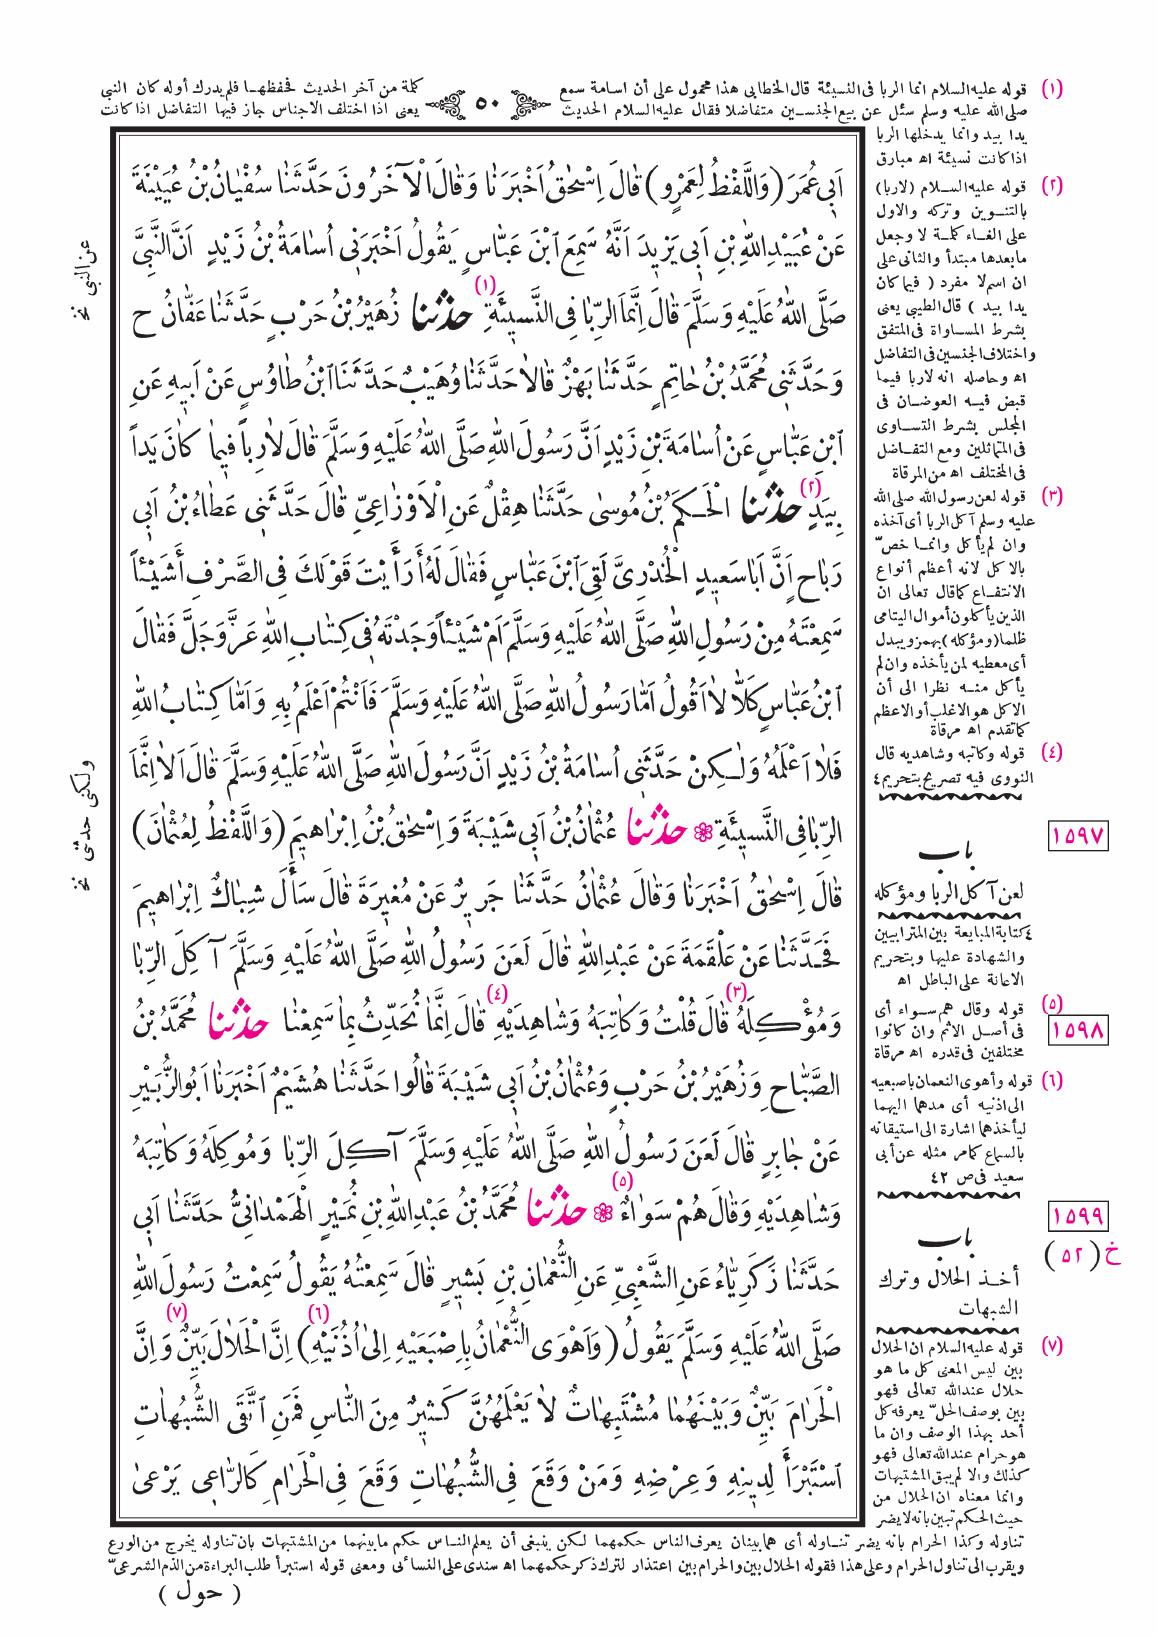 (١) قوله عليه السلام انما الربا فى النسيئة قال الخطابى هذا محمول على أن اسامة سمع كلمة من آخر الحديث فحفظهـا فلم يدرك أوله كان النبى
٥٠
صلى الله عليه وسلم سئل عن بيع الجنسـين متفاضلا فقال عليه السلام الحديث يعنى اذا اختلف الاجناس جاز فيها التفاضل اذا كانت
يدا بيد وانما يدخلها الربا
اذا كانت نسيئة اه مبارق
(٢) قوله عليه السـلام (لا ربا)
بالتنـوين وتركه والاول
على الغـاء كلمـة لا وجعل
مابعدها مبتدأ والثانى على
ان اسم لا مفرد ( فيما كان
يدا بيد ) قال الطيبى يعنى
بشرط المسـاواة فى المتفق
واختلاف الجنسين فى التفاضل
اه وحاصله انه لا ربا فيما
قبض فيـه العوضـان فى
المجلس بشرط التسـاوى
فى المتماثلين ومع التفـاضل
فى المختلف اه من المرقاة
(٣) قوله لعن رسول الله صلى الله
عليه وسلم آكل الربا أى آخذه
وان لم يأكل وانمـا خصّ
بالاكل لانه أعظم أنواع
الانتفـاع كما قال تعالى ان
الذين يأكلون أموال اليتامى
ظلما (ومؤكله) بهمز ويبدل
أى معطيه لمن يأخذه وان لم
يأكل منـه نظرا الى أن
الاكل هو الاغلب أو الاعظم
كما تقدم اه مرقاة
(٤) قوله وكاتبه وشاهديه قال
النووى فيه تصريح بتحريم ٤
١٥٩٧
باب
لعن آكل الربا ومؤكله
٤ كتابة المبايعة بين المترابيين
والشهادة عليها وبتحريم
الاعانة على الباطل اه
(٥) قوله وقال هم سـواء أى
فى أصـل الاثم وان كانوا
مختلفين فى قدره اه مرقاة
١٥٩٨
(٦) قوله وأهوى النعمان باصبعيه
الى اذنيه أى مدهما اليهما
ليأخذهما اشارة الى استيقانه
بالسماع كما مر مثله عن أبى
سعيد فى ص ٤٢
١٥٩٩
خ ( ٥٢ )
باب
أخـذ الحلال وترك
الشبهات
(٧) قوله عليه السلام ان الحلال
بين ليس المعنى كل ما هو
حلال عند الله تعالى فهو
بين بوصف الحلّ يعرفه كل
أحد بهذا الوصف وان ما
هو حرام عند الله تعالى فهو
كذلك والا لم يبق المشتبهات
وانما معناه ان الحلال من
حيث الحكم تبين بانه لا يضر
اَبِى عُمَرَ (وَاللَّفْظُ لِعَمْرٍو) قَالَ اِسْحٰقُ اَخْبَرَنَا وَقَالَ الْآخَرُونَ حَدَّثَنَا سُفْيَانُ بْنُ عُيَيْنَةَ
عَنْ عُبَيْدِ اللهِ بْنِ اَبِى يَزِيدَ اَنَّهُ سَمِعَ ابْنَ عَبَّاسٍ يَقُولُ اَخْبَرَنِى اُسَامَةُ بْنُ زَيْدٍ اَنَّ النَّبِىَّ
صَلَّى اللهُ عَلَيْهِ وَسَلَّمَ قَالَ اِنَّمَا الرِّبَا فِى النَّسِيئَةِ (١) حدّثنا زُهَيْرُ بْنُ حَرْبٍ حَدَّثَنَا عَفَّانُ ح
وَحَدَّثَنِى مُحَمَّدُ بْنُ حَاتِمٍ حَدَّثَنَا بَهْزٌ قَالَا حَدَّثَنَا وُهَيْبٌ حَدَّثَنَا ابْنُ طَاوُسٍ عَنْ اَبِيهِ عَنِ
ابْنِ عَبَّاسٍ عَنْ اُسَامَةَ بْنِ زَيْدٍ اَنَّ رَسُولَ اللهِ صَلَّى اللهُ عَلَيْهِ وَسَلَّمَ قَالَ لَا رِباً فِيمَا كَانَ يَداً
بِيَدٍ (٢) حدّثنا الْحَكَمُ بْنُ مُوسٰى حَدَّثَنَا هِقْلٌ عَنِ الْاَوْزَاعِىِّ قَالَ حَدَّثَنِى عَطَاءُ بْنُ اَبِى
رَبَاحٍ اَنَّ اَبَا سَعِيدٍ الْخُدْرِىَّ لَقِىَ ابْنَ عَبَّاسٍ فَقَالَ لَهُ أَرَأَيْتَ قَوْلَكَ فِى الصَّرْفِ أَشَيْئاً
سَمِعْتَهُ مِنْ رَسُولِ اللهِ صَلَّى اللهُ عَلَيْهِ وَسَلَّمَ اَمْ شَيْئاً وَجَدْتَهُ فِى كِتَابِ اللهِ عَزَّ وَجَلَّ فَقَالَ
ابْنُ عَبَّاسٍ كَلَّا لَا اَقُولُ اَمَّا رَسُولُ اللهِ صَلَّى اللهُ عَلَيْهِ وَسَلَّمَ فَاَنْتُمْ اَعْلَمُ بِهِ وَاَمَّا كِتَابُ اللهِ
فَلَا اَعْلَمُهُ وَلٰكِنْ حَدَّثَنِى اُسَامَةُ بْنُ زَيْدٍ اَنَّ رَسُولَ اللهِ صَلَّى اللهُ عَلَيْهِ وَسَلَّمَ قَالَ اَلَا اِنَّمَا
الرِّبَا فِى النَّسِيئَةِ ۞ حدّثنا عُثْمَانُ بْنُ اَبِى شَيْبَةَ وَاِسْحٰقُ بْنُ اِبْرَاهِيمَ (وَاللَّفْظُ لِعُثْمَانَ)
قَالَ اِسْحٰقُ اَخْبَرَنَا وَقَالَ عُثْمَانُ حَدَّثَنَا جَرِيرٌ عَنْ مُغِيرَةَ قَالَ سَأَلَ شِبَاكٌ اِبْرَاهِيمَ
فَحَدَّثَنَا عَنْ عَلْقَمَةَ عَنْ عَبْدِ اللهِ قَالَ لَعَنَ رَسُولُ اللهِ صَلَّى اللهُ عَلَيْهِ وَسَلَّمَ آكِلَ الرِّبَا
وَمُؤْكِلَهُ (٣) قَالَ قُلْتُ وَكَاتِبَهُ وَشَاهِدَيْهِ (٤) قَالَ اِنَّمَا نُحَدِّثُ بِمَا سَمِعْنَا حدّثنا مُحَمَّدُ بْنُ
الصَّبَّاحِ وَزُهَيْرُ بْنُ حَرْبٍ وَعُثْمَانُ بْنُ اَبِى شَيْبَةَ قَالُوا حَدَّثَنَا هُشَيْمٌ اَخْبَرَنَا اَبُو الزُّبَيْرِ
عَنْ جَابِرٍ قَالَ لَعَنَ رَسُولُ اللهِ صَلَّى اللهُ عَلَيْهِ وَسَلَّمَ آكِلَ الرِّبَا وَمُوكِلَهُ وَكَاتِبَهُ
وَشَاهِدَيْهِ وَقَالَ هُمْ سَوَاءٌ (٥) ۞ حدّثنا مُحَمَّدُ بْنُ عَبْدِ اللهِ بْنِ نُمَيْرٍ الْهَمْدَانِىُّ حَدَّثَنَا اَبِى
حَدَّثَنَا زَكَرِيَّاءُ عَنِ الشَّعْبِىِّ عَنِ النُّعْمَانِ بْنِ بَشِيرٍ قَالَ سَمِعْتُهُ يَقُولُ سَمِعْتُ رَسُولَ اللهِ
صَلَّى اللهُ عَلَيْهِ وَسَلَّمَ يَقُولُ (وَاَهْوَى النُّعْمَانُ بِاِصْبَعَيْهِ اِلٰى اُذُنَيْهِ) (٦) اِنَّ الْحَلَالَ بَيِّنٌ (٧) وَاِنَّ
الْحَرَامَ بَيِّنٌ وَبَيْنَهُمَا مُشْتَبِهَاتٌ لَا يَعْلَمُهُنَّ كَثِيرٌ مِنَ النَّاسِ فَمَنِ اتَّقَى الشُّبُهَاتِ
اسْتَبْرَأَ لِدِينِهِ وَعِرْضِهِ وَمَنْ وَقَعَ فِى الشُّبُهَاتِ وَقَعَ فِى الْحَرَامِ كَالرَّاعِى يَرْعٰى
عن النبى نخ
ولكنى حدثنى نخ
تناوله وكذا الحرام بانه يضر تنـاوله أى هما بينان يعرف الناس حكمهما لـكن ينبغى أن يعلم النـاس حكم ما بينهما من المشتبهات بان تناوله يخرج من الورع
ويقرب الى تناول الحرام وعلى هذا فقوله الحلال بين والحرام بين اعتذار لترك ذكر حكمهما اه سندى على النسائى ومعنى قوله استبرأ طلب البراءة من الذم الشرعىّ
( حول )